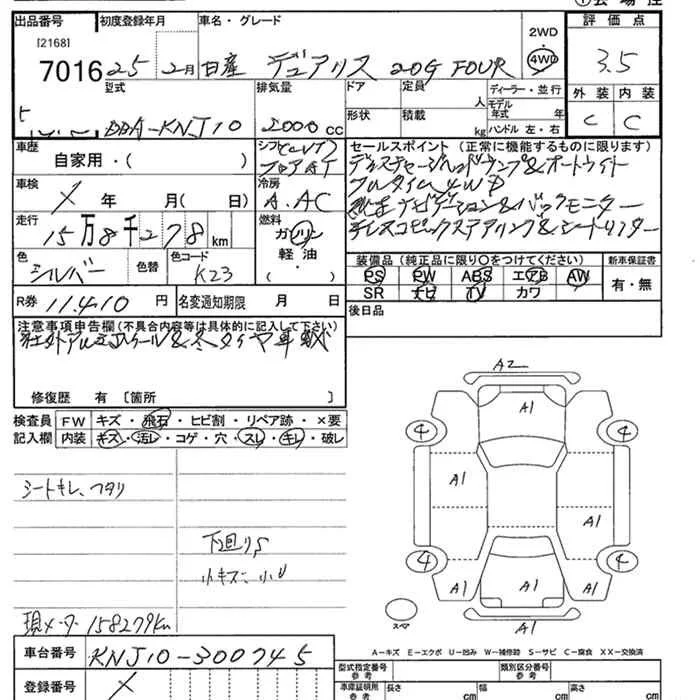 ①会場住
出品番号 初度登録年月 車名・グレード 2WD・4WD 評価点
[2168]
7016 25 2月 日産 デュアリス 20G FOUR 3.5
型式 排気量 ドア 定員 人 ディーラー・並行 外装 内装
DBA-KNJ10 2000cc 形状 積載 kg モデル年式 年 C C
ハンドル 左・右
車歴 シフト セールスポイント (正常に機能するものに限ります)
自家用・( ) フロアAT ディスチャージヘッドランプ&オートライト
車検 冷房 フルタイム4WD
X 年 月( 日) A.AC ナビゲーション&バックモニター
走行 燃料 &シートリフター
15万8千278km ガソリン
軽油・
( )
色 色替 色コード 装備品(純正品に限り○をつけてください) 新車保証書
シルバー K23 PS PW ABS エアB AW 有・無
SR ナビ TV カワ
R券 11410円 名変通知期限 月 日 後日品
注意事項申告欄(不具合内容等は具体的に記入して下さい)
社外アルミホイール&冬タイヤ車載
修復歴 有 [箇所 ]
検査員 FW キズ・飛石・ヒビ割・リペア跡・×要
記入欄 内装 キズ・汚レ・コゲ・穴・スレ・キレ・破レ
A2
A1
4 4
シートキレ、
A1
A1
下廻りS
4 4
小キズ
A1 A1 A1
スペア
A1
現メーター158279Km
A-キズ E-エクボ U-凹み W-補修跡 S-サビ C-腐食 XX-交換済
車台番号 KNJ10-300745 型式指定番号 参考 類別区分番号 参考
登録番号 X 車庫証明所 参考 長さ cm 幅 cm 高さ cm